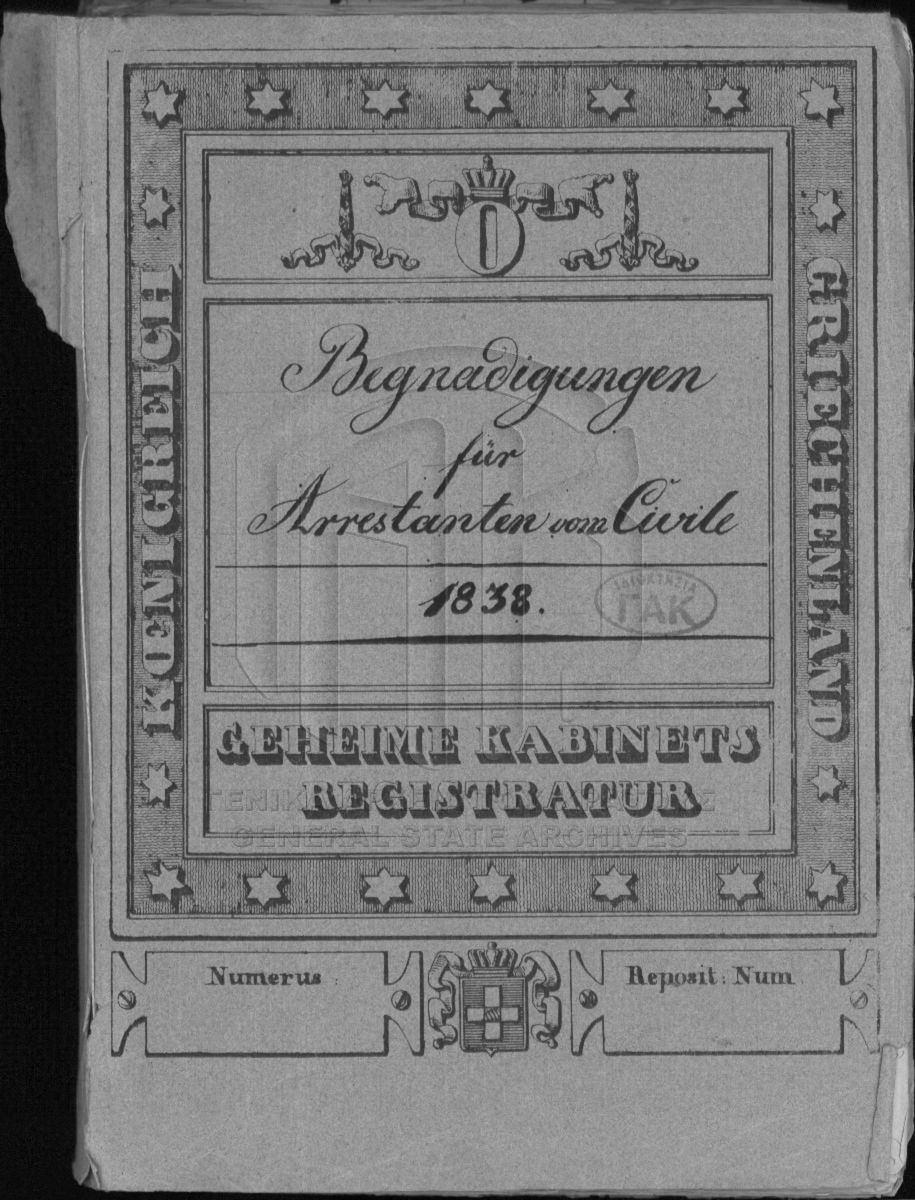 O
KŒNIGREICH
GRIECHENLAND
Begnadigungen
für
Arrestanten vom Civile
1838.
ΓΑΚ
GEHEIME KABINETS
REGISTRATUR
GENERAL STATE ARCHIVES
Numerus
Reposit: Num